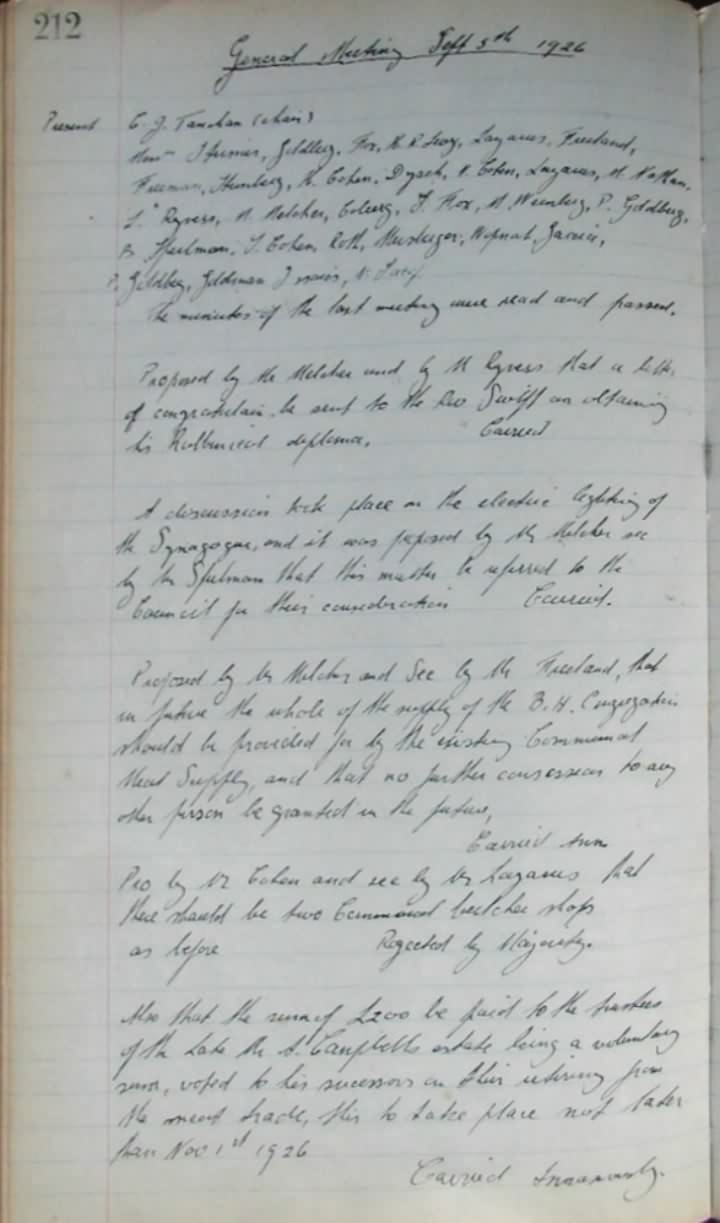 212
General Meeting Sept 5th 1926
Present
C. J. (Chair)
Goldberg, Fox, Lazarus, Freeland,
Freeman, Steinberg, H. Cohen, Dysch, N. Cohen, Lazarus, H Nathan,
Ryness, H. Melcher, Coberg, J. Fox, H. Weinberg, P. Goldberg,
B Spilman, S. Cohen, Roth,
Goldberg, Goldman
The minutes of the last meeting were read and passed.
Proposed by Mr Melcher and by Mr Ryness that a letter
of congratulation be sent to the Rev Swift on obtaining
his Rabbinical diploma. Carried
A discussion took place on the electric lighting of
the Synagogue, and it was proposed by Mr Melcher sec
by Mr Spilman that this matter be referred to the
Council for their consideration Carried.
Proposed by Mr Melcher and Sec by Mr Freeland, that
in future the whole of the supply of the B. H. Congregation
should be provided for by the existing Communal
Meat Supply, and that no further concession to any
other person be granted in the future,
Carried
Pro by Mr Cohen and sec by Mr Lazarus that
there should be two Communal butcher shops
as before Rejected by Majority.
Also that the sum of £200 be paid to the trustees
of the late Mr S. Campbells estate being a voluntary
sum, voted to his sucessors on their retiring from
the meat trade, this to take place not later
than Nov 1st 1926
Carried